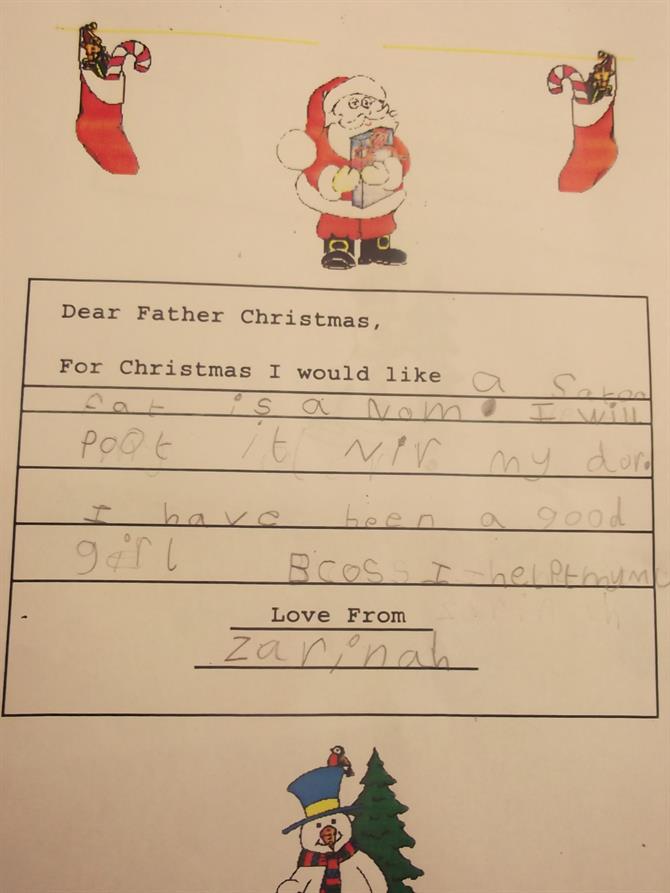 Dear Father Christmas,
For Christmas I would like a
is a Nom. I will
poot it Nir my dor.
I have been a good
girl Bcos I helpt my
Love From
Zarinah